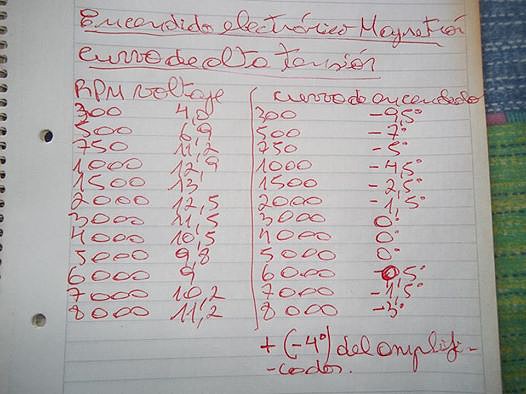 Encendido electrónico Magnetrón
Curva de alta tensión
RPM voltaje curva de encendido
300 4,0 300 -9,5°
500 6,9 500 -7°
750 11,2 750 -5°
1000 12,9 1000 -4,5°
1500 13, 1500 -2,5°
2000 12,5 2000 -1,5°
3000 11,5 3000 0°
4000 10,5 4000 0°
5000 9,8 5000 0°
6000 9 6000 -0,5°
7000 10,2 7000 -1,5°
8000 11,2 8000 -3°
+ (-4°) del amplifi-
-cador.